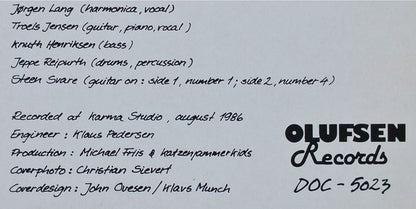 Jørgen Lang (harmonica, vocal)
Troels Jensen (guitar, piano, vocal)
Knuth Henriksen (bass)
Jeppe Reipurth (drums, percussion)
Steen Svare (guitar on : side 1, number 1 ; side 2, number 4)
Recorded at Karma Studio, august 1986
Engineer : Klaus Pedersen
Production : Michael Friis & Katzenjammerkids
Coverphoto : Christian Sievert
Coverdesign : John Ovesen / Klavs Munch
OLUFSEN
Records
DOC - 5023